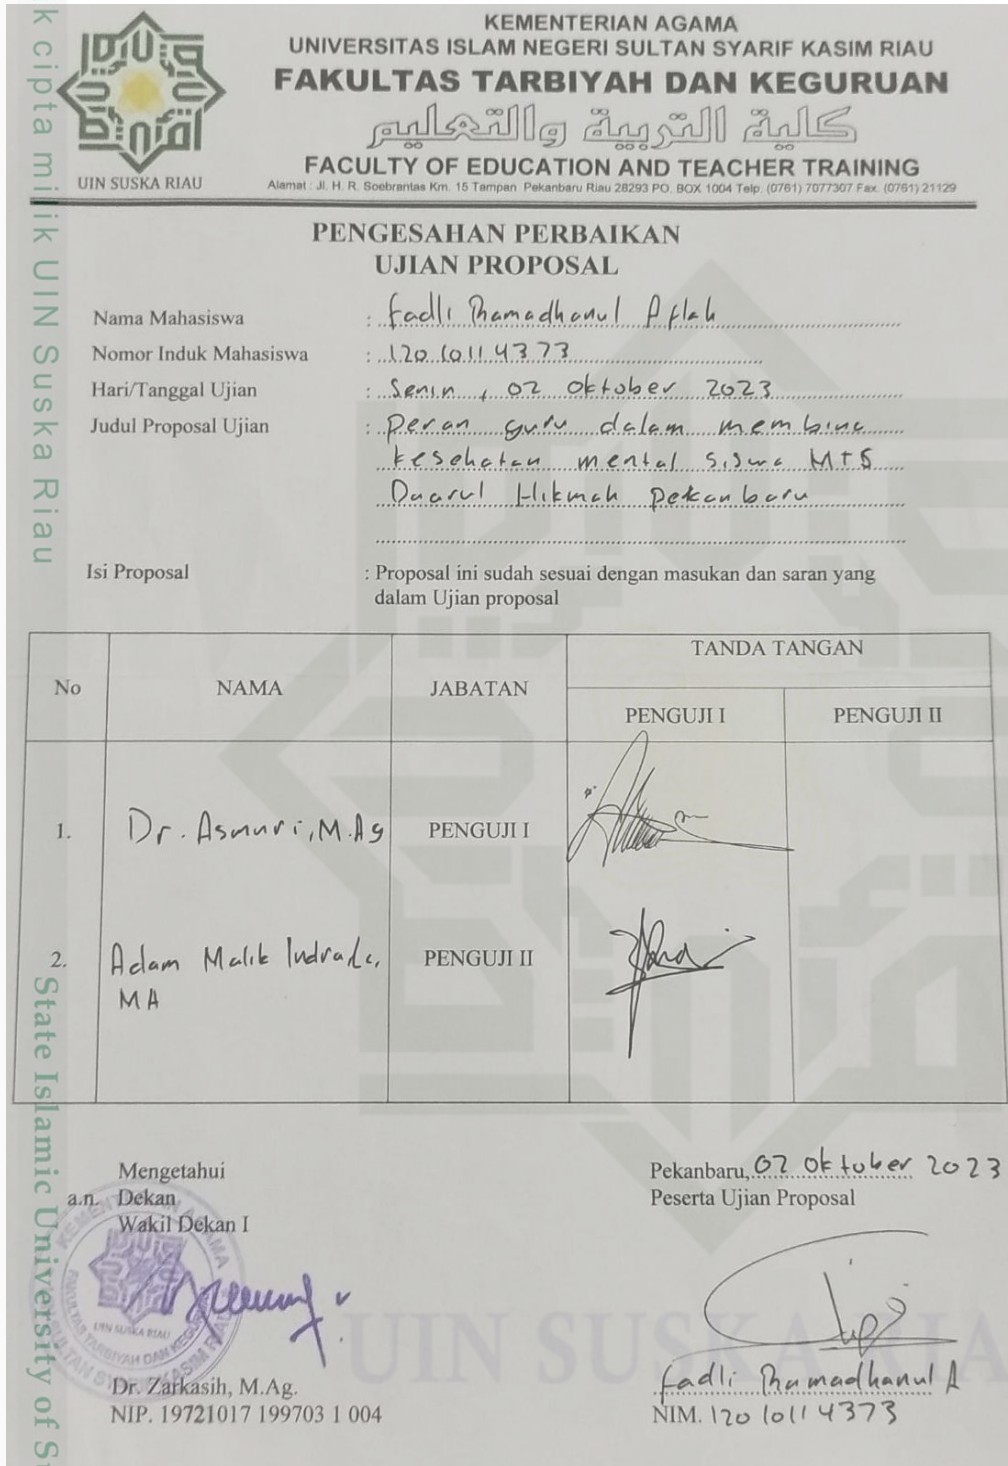 KEMENTERIAN AGAMA
UNIVERSITAS ISLAM NEGERI SULTAN SYARIF KASIM RIAU
FAKULTAS TARBIYAH DAN KEGURUAN
كلية التربية والتعليم
FACULTY OF EDUCATION AND TEACHER TRAINING
Alamat : Jl. H. R. Soebrantas Km. 15 Tampan Pekanbaru Riau 28293 PO. BOX 1004 Telp. (0761) 7077307 Fax. (0761) 21129
UIN SUSKA RIAU
k cipta milik UIN Suska Riau
PENGESAHAN PERBAIKAN
UJIAN PROPOSAL
Nama Mahasiswa : Fadli Rhamadhanul Aflah
Nomor Induk Mahasiswa : 12010114373
Hari/Tanggal Ujian : Senin, 02 Oktober 2023
Judul Proposal Ujian : Peran guru dalam membina
kesehatan mental siswa MTS
Daarul Hikmah Pekanbaru
Isi Proposal : Proposal ini sudah sesuai dengan masukan dan saran yang
dalam Ujian proposal
No NAMA JABATAN TANDA TANGAN
PENGUJI I PENGUJI II
1. Dr. Asmuri, M.Ag PENGUJI I
2. Adam Malik Indrada, PENGUJI II
MA
State Islamic University of S
Mengetahui
a.n. Dekan
Wakil Dekan I
UIN SUSKA RIAU
Dr. Zarkasih, M.Ag.
NIP. 19721017 199703 1 004
Pekanbaru, 02 Oktober 2023
Peserta Ujian Proposal
Fadli Rhamadhanul A
NIM. 12010114373
UIN SUSKA RIA